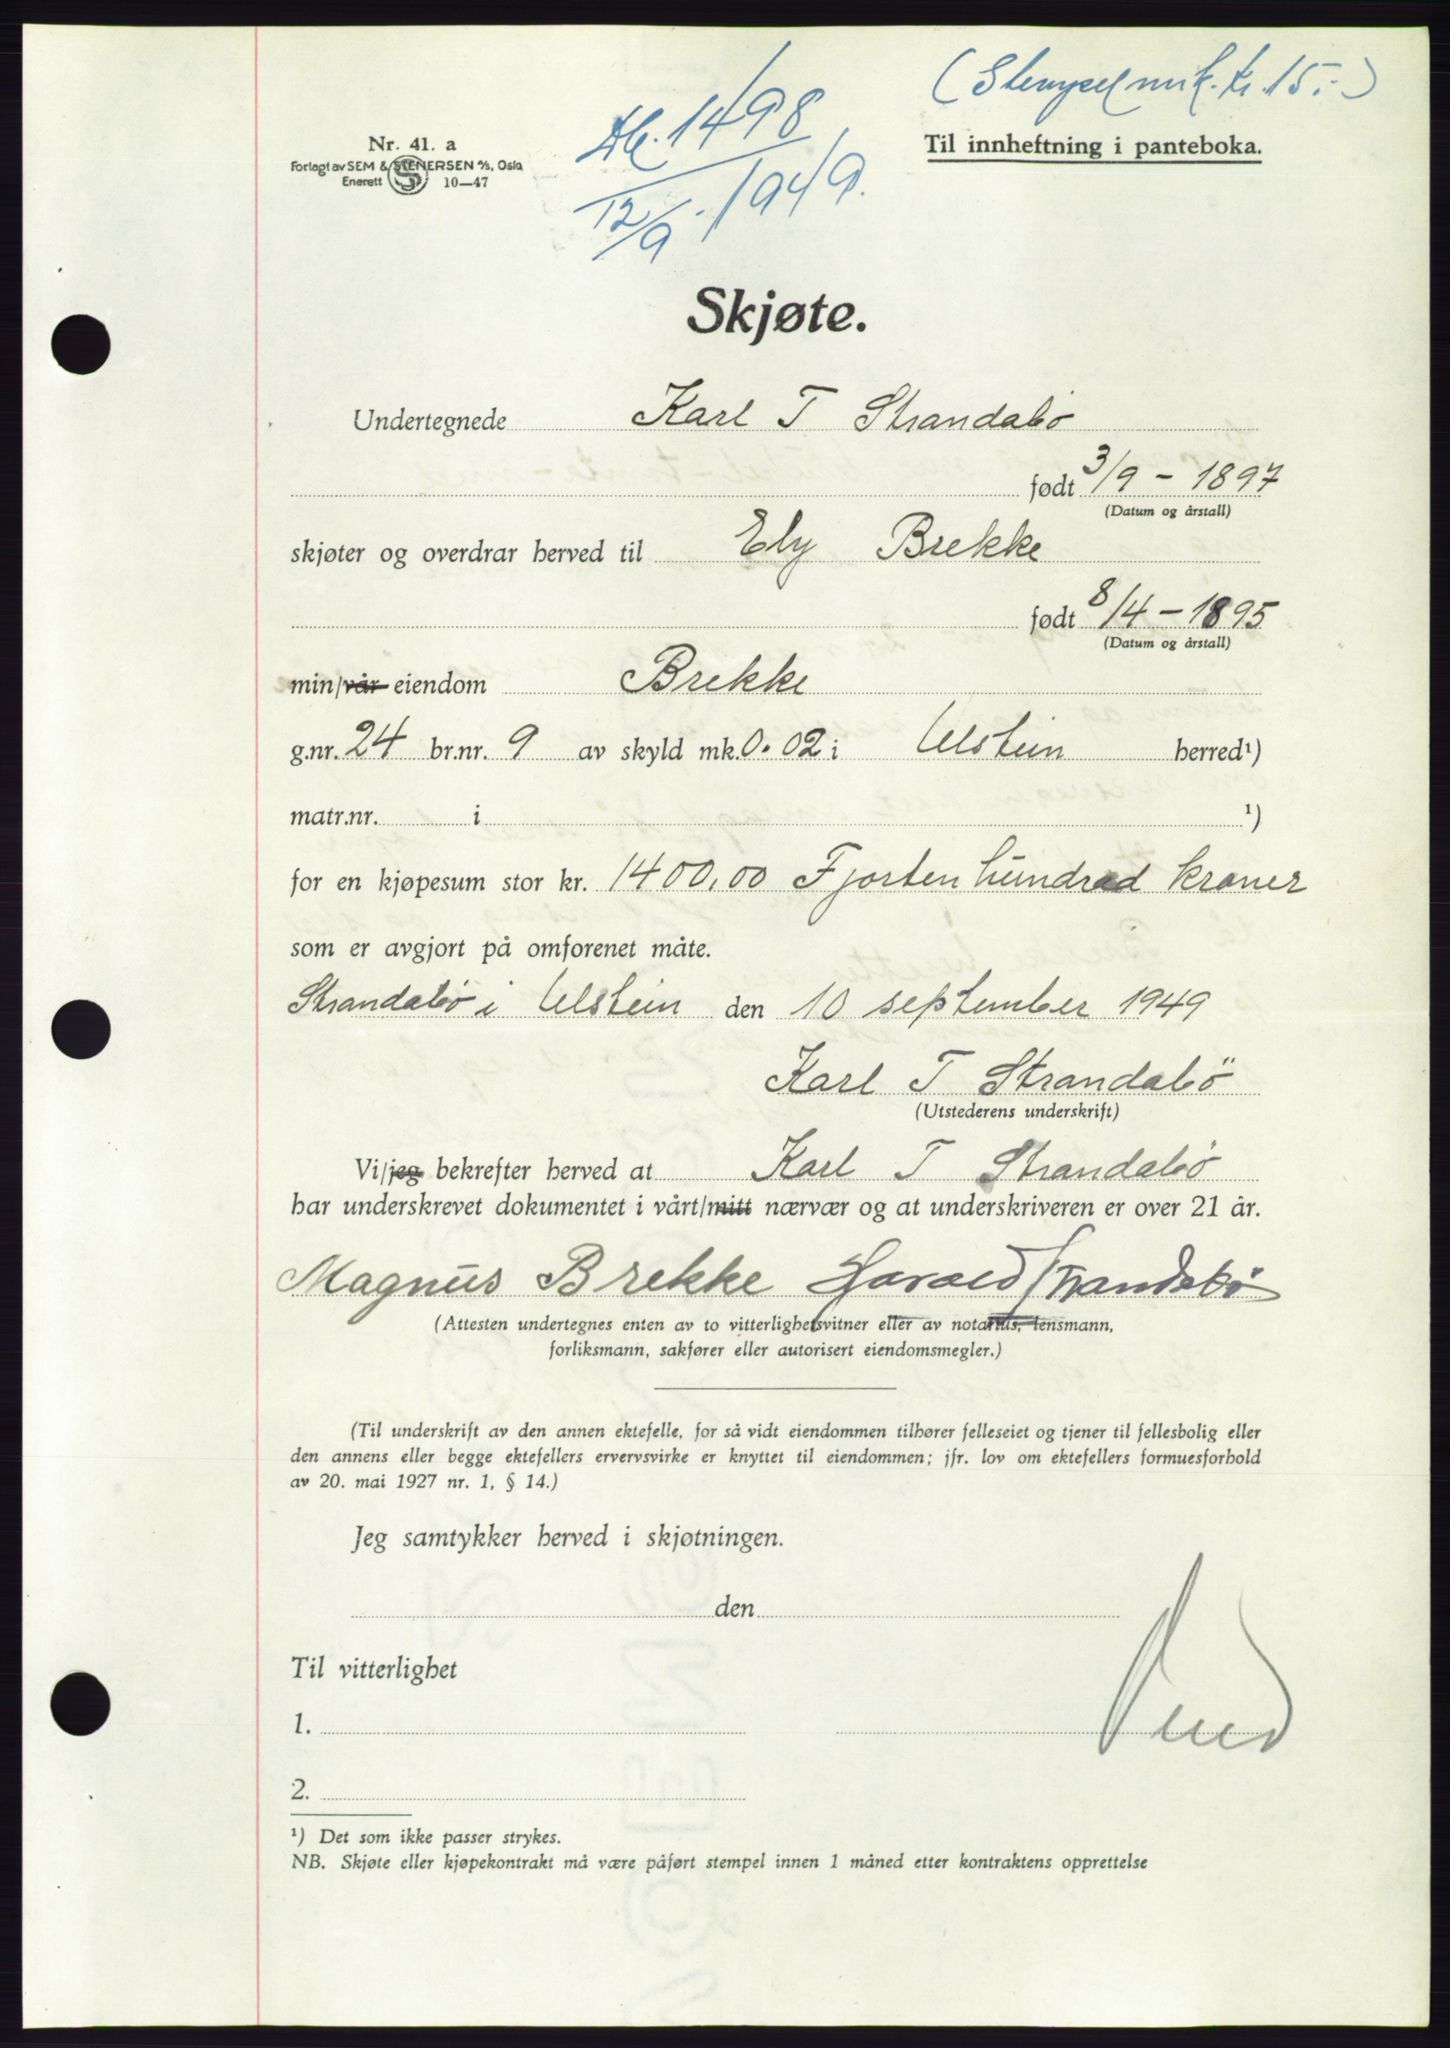 (Stempelmrk. kr. 15.-)
Nr. 41. a
Forlagt av SEM & STENERSEN A/S, Oslo
Enerett 10—47
1498/1949
12/9
Til innheftning i panteboka.
Skjøte.
Undertegnede Karl T Strandabø
født 3/9 - 1897
(Datum og årstall)
skjøter og overdrar herved til Ely Brekke
født 8/4 - 1895
(Datum og årstall)
min/vår eiendom Brekke
g.nr. 24 br.nr. 9 av skyld mk. 0.02 i Ulstein herred¹)
matr.nr. i ¹)
for en kjøpesum stor kr. 1400,00 Fjorten hundrad kroner
som er avgjort på omforenet måte.
Strandabø i Ulstein den 10 september 1949
Karl T Strandabö
(Utstederens underskrift)
Vi/jeg bekrefter herved at Karl T Strandabö
har underskrevet dokumentet i vårt/mitt nærvær og at underskriveren er over 21 år.
Magnus Brekke Harald Strandabø
(Attesten undertegnes enten av to vitterlighetsvitner eller av notarius, lensmann,
forliksmann, sakfører eller autorisert eiendomsmegler.)
(Til underskrift av den annen ektefelle, for så vidt eiendommen tilhører felleseiet og tjener til fellesbolig eller
den annens eller begge ektefellers ervervsvirke er knyttet til eiendommen; jfr. lov om ektefellers formuesforhold
av 20. mai 1927 nr. 1, § 14.)
Jeg samtykker herved i skjøtningen.
den
Til vitterlighet
1.
2.
¹) Det som ikke passer strykes.
NB. Skjøte eller kjøpekontrakt må være påført stempel innen 1 måned etter kontraktens opprettelse